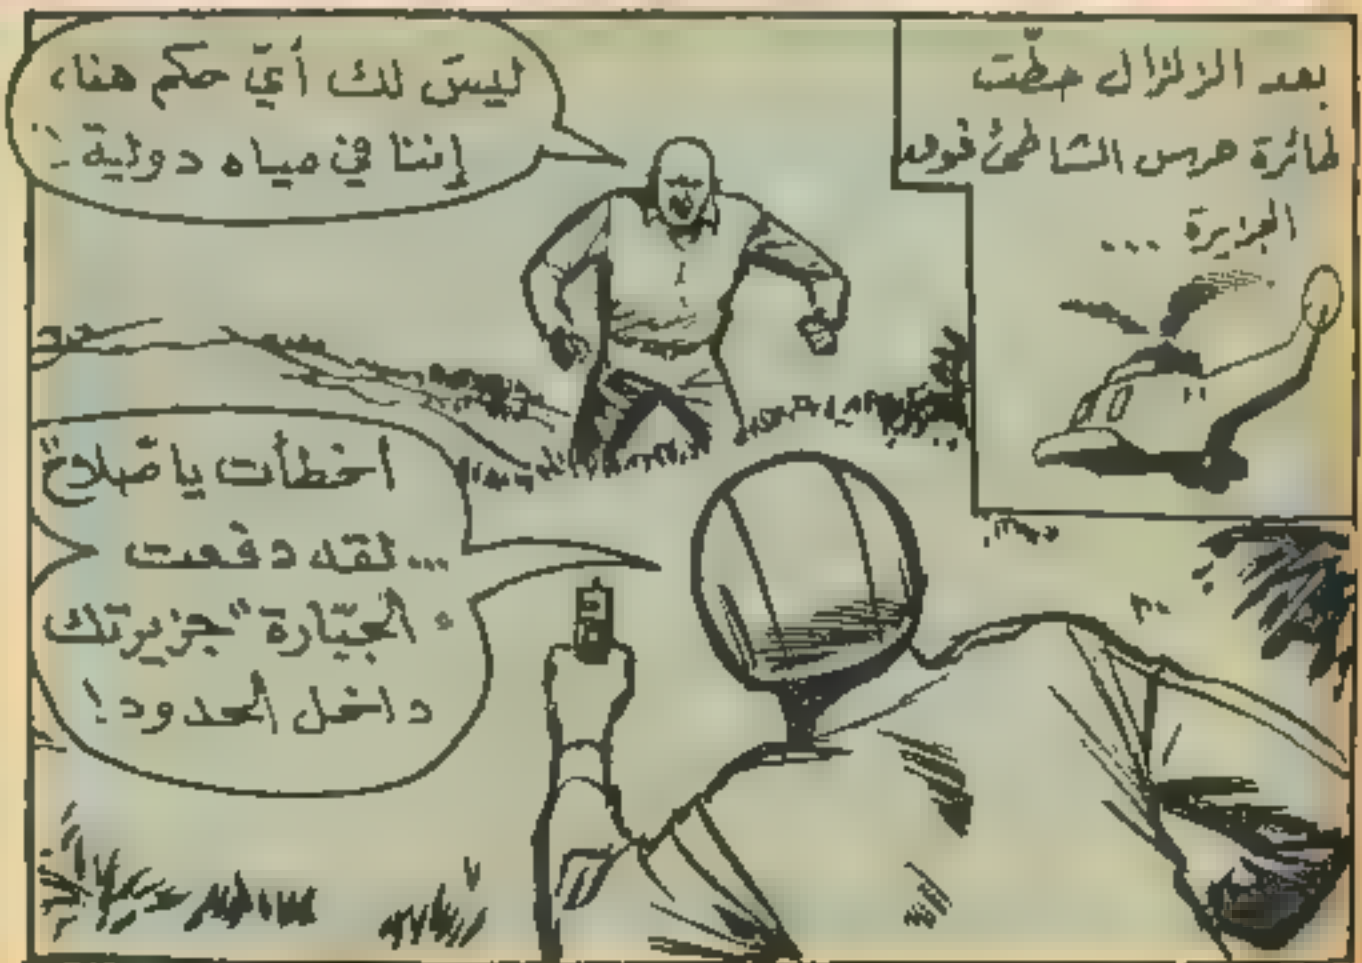 بعد الزلزال حطّت
طائرة حرس الشاطئ فوق
الجزيرة ...
ليس لك أيّ حكم هنا،
إننا في مياه دولية !
أخطأت يا صلاح
... لقد دفعت
" الجبّارة " جزيرتك
داخل الحدود !